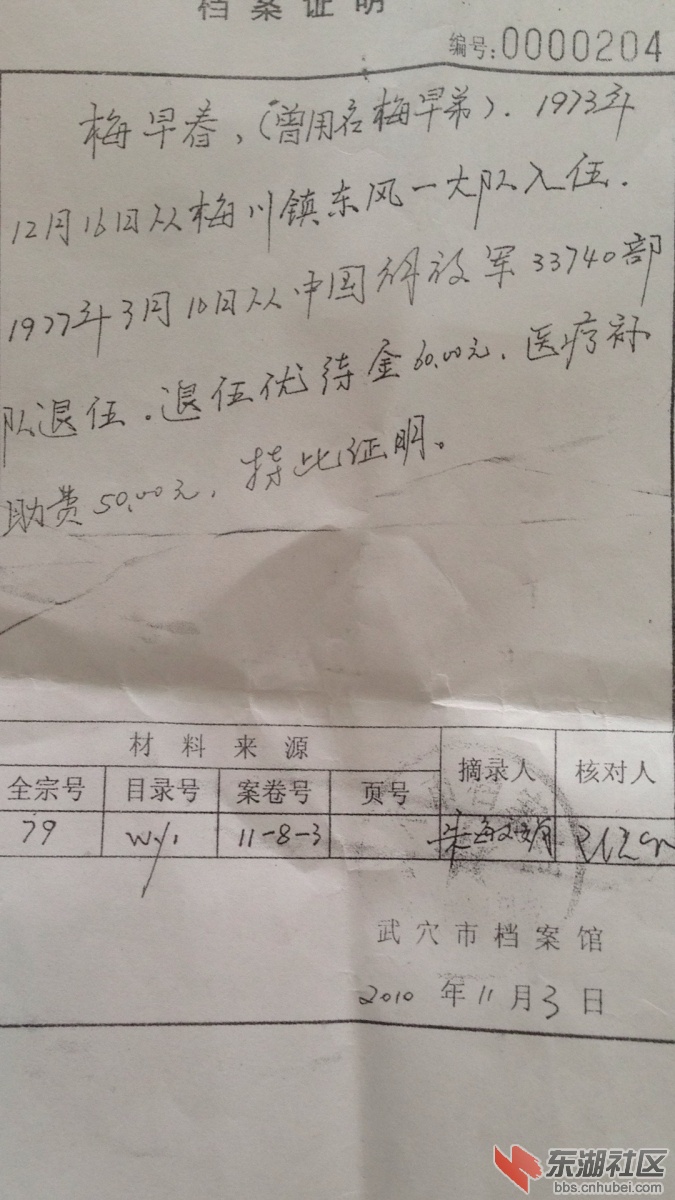 档案证明
编号:0000204
梅早春,(曾用名梅早弟).1973年
12月16日从梅川镇东风一大队入伍.
1977年3月10日从中国解放军33740部
队退伍.退伍优待金60.00元.医疗补
助费50.00元,持此证明。
材料来源 摘录人 核对人
全宗号 目录号 案卷号 页号
79 11-8-3
武穴市档案馆
2010年11月3日
东湖社区
bbs.cnhubei.com